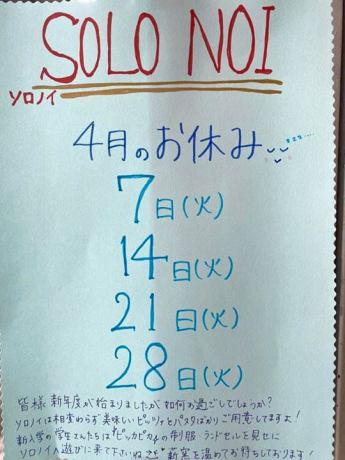 SOLO NOI
ソロノイ
4月のお休み zzz....
7日(火)
14日(火)
21日(火)
28日(火)
皆様 新年度が始まりましたが如何お過ごしでしょうか?
ソロノイは相変わらず美味しいピッツァとパスタばかりご用意してますよ!
新入学の学生さんたちは"ピッカピカ"の制服・ランドセルを見せに
ソロノイへ遊びに来て下さいね 窯を温めてお待ちしております!